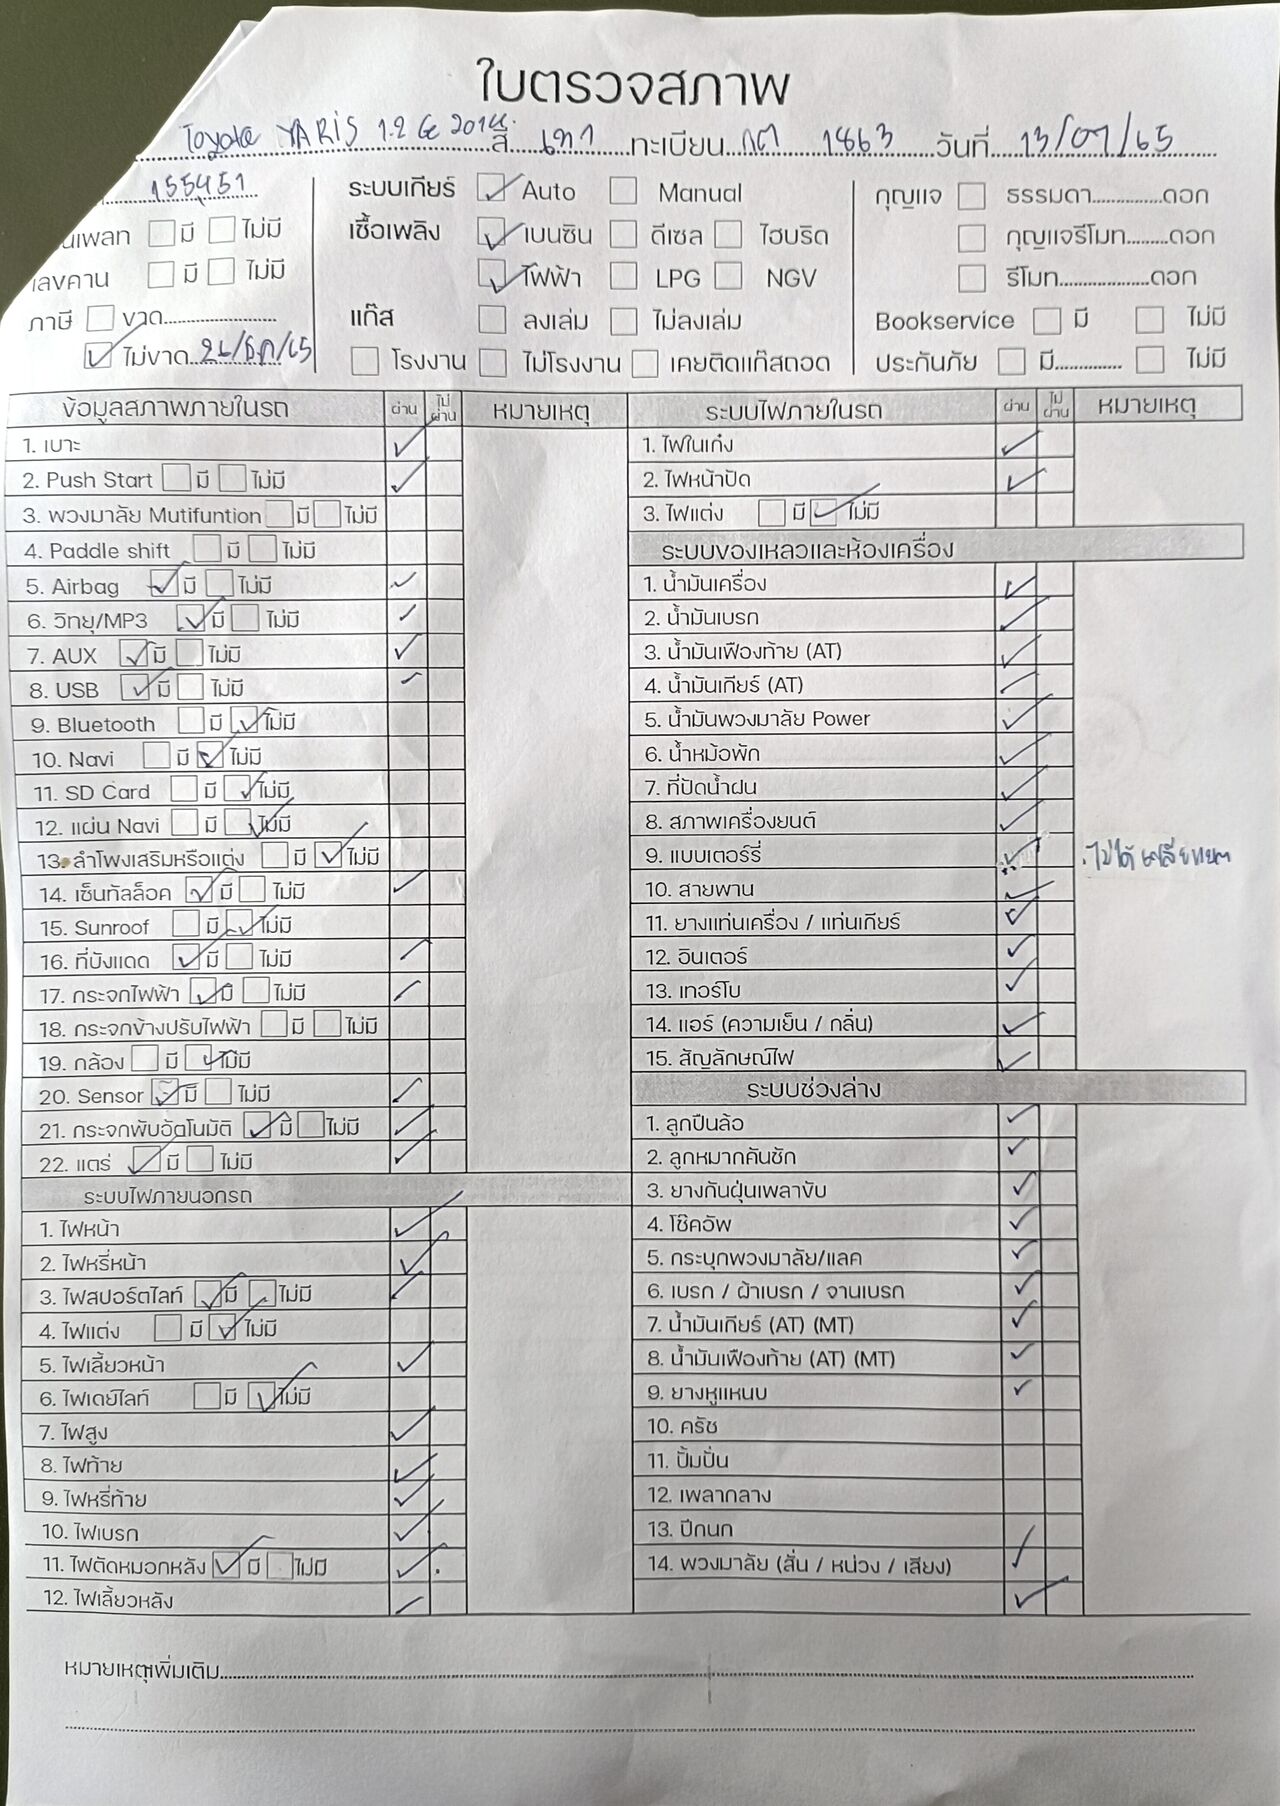 ใบตรวจสภาพ
Toyota YARIS 1.2 G 2014 สี เทา ทะเบียน กต 1863 วันที่ 13/07/65
155451 ระบบเกียร์ Auto Manual กุญแจ ธรรมดา ดอก
นเพลท มี ไม่มี เชื้อเพลิง เบนซิน ดีเซล ไฮบริด กุญแจรีโมท ดอก
เลขคาน มี ไม่มี ไฟฟ้า LPG NGV รีโมท ดอก
ภาษี ขาด แก๊ส ลงเล่ม ไม่ลงเล่ม Bookservice มี ไม่มี
ไม่ขาด โรงงาน ไม่โรงงาน เคยติดแก๊สถอด ประกันภัย มี ไม่มี
ข้อมูลสภาพภายในรถ ผ่าน ไม่ผ่าน หมายเหตุ
1. เบาะ
2. Push Start มี ไม่มี
3. พวงมาลัย Mutifuntion มี ไม่มี
4. Paddle shift มี ไม่มี
5. Airbag มี ไม่มี
6. วิทยุ/MP3 มี ไม่มี
7. AUX มี ไม่มี
8. USB มี ไม่มี
9. Bluetooth มี ไม่มี
10. Navi มี ไม่มี
11. SD Card มี ไม่มี
12. แผ่น Navi มี ไม่มี
13. ลำโพงเสริมหรือแต่ง มี ไม่มี
14. เซ็นทัลล็อค มี ไม่มี
15. Sunroof มี ไม่มี
16. ที่บังแดด มี ไม่มี
17. กระจกไฟฟ้า มี ไม่มี
18. กระจกข้างปรับไฟฟ้า มี ไม่มี
19. กล้อง มี ไม่มี
20. Sensor มี ไม่มี
21. กระจกพับอัตโนมัติ มี ไม่มี
22. แตร่ มี ไม่มี
ระบบไฟภายนอกรถ
1. ไฟหน้า
2. ไฟหรี่หน้า
3. ไฟสปอร์ตไลท์ มี ไม่มี
4. ไฟแต่ง มี ไม่มี
5. ไฟเลี้ยวหน้า
6. ไฟเดย์ไลท์ มี ไม่มี
7. ไฟสูง
8. ไฟท้าย
9. ไฟหรี่ท้าย
10. ไฟเบรก
11. ไฟตัดหมอกหลัง มี ไม่มี
12. ไฟเลี้ยวหลัง
ระบบไฟภายในรถ ผ่าน ไม่ผ่าน หมายเหตุ
1. ไฟในเก๋ง
2. ไฟหน้าปัด
3. ไฟแต่ง มี ไม่มี
ระบบของเหลวและห้องเครื่อง
1. น้ำมันเครื่อง
2. น้ำมันเบรก
3. น้ำมันเฟืองท้าย (AT)
4. น้ำมันเกียร์ (AT)
5. น้ำมันพวงมาลัย Power
6. น้ำหม้อพัก
7. ที่ปัดน้ำฝน
8. สภาพเครื่องยนต์
9. แบบเตอร์รี่ ไม่ได้
10. สายพาน
11. ยางแท่นเครื่อง / แท่นเกียร์
12. อินเตอร์
13. เทอร์โบ
14. แอร์ (ความเย็น / กลิ่น)
15. สัญลักษณ์ไฟ
ระบบช่วงล่าง
1. ลูกปืนล้อ
2. ลูกหมากคันชัก
3. ยางกันฝุ่นเพลาขับ
4. โช๊คอัพ
5. กระบุกพวงมาลัย/แลค
6. เบรก / ผ้าเบรก / จานเบรก
7. น้ำมันเกียร์ (AT) (MT)
8. น้ำมันเฟืองท้าย (AT) (MT)
9. ยางหูแหนบ
10. ครัช
11. ปั้มปั่น
12. เพลากลาง
13. ปีกนก
14. พวงมาลัย (สั่น / หน่วง / เสียง)
หมายเหตุเพิ่มเติม